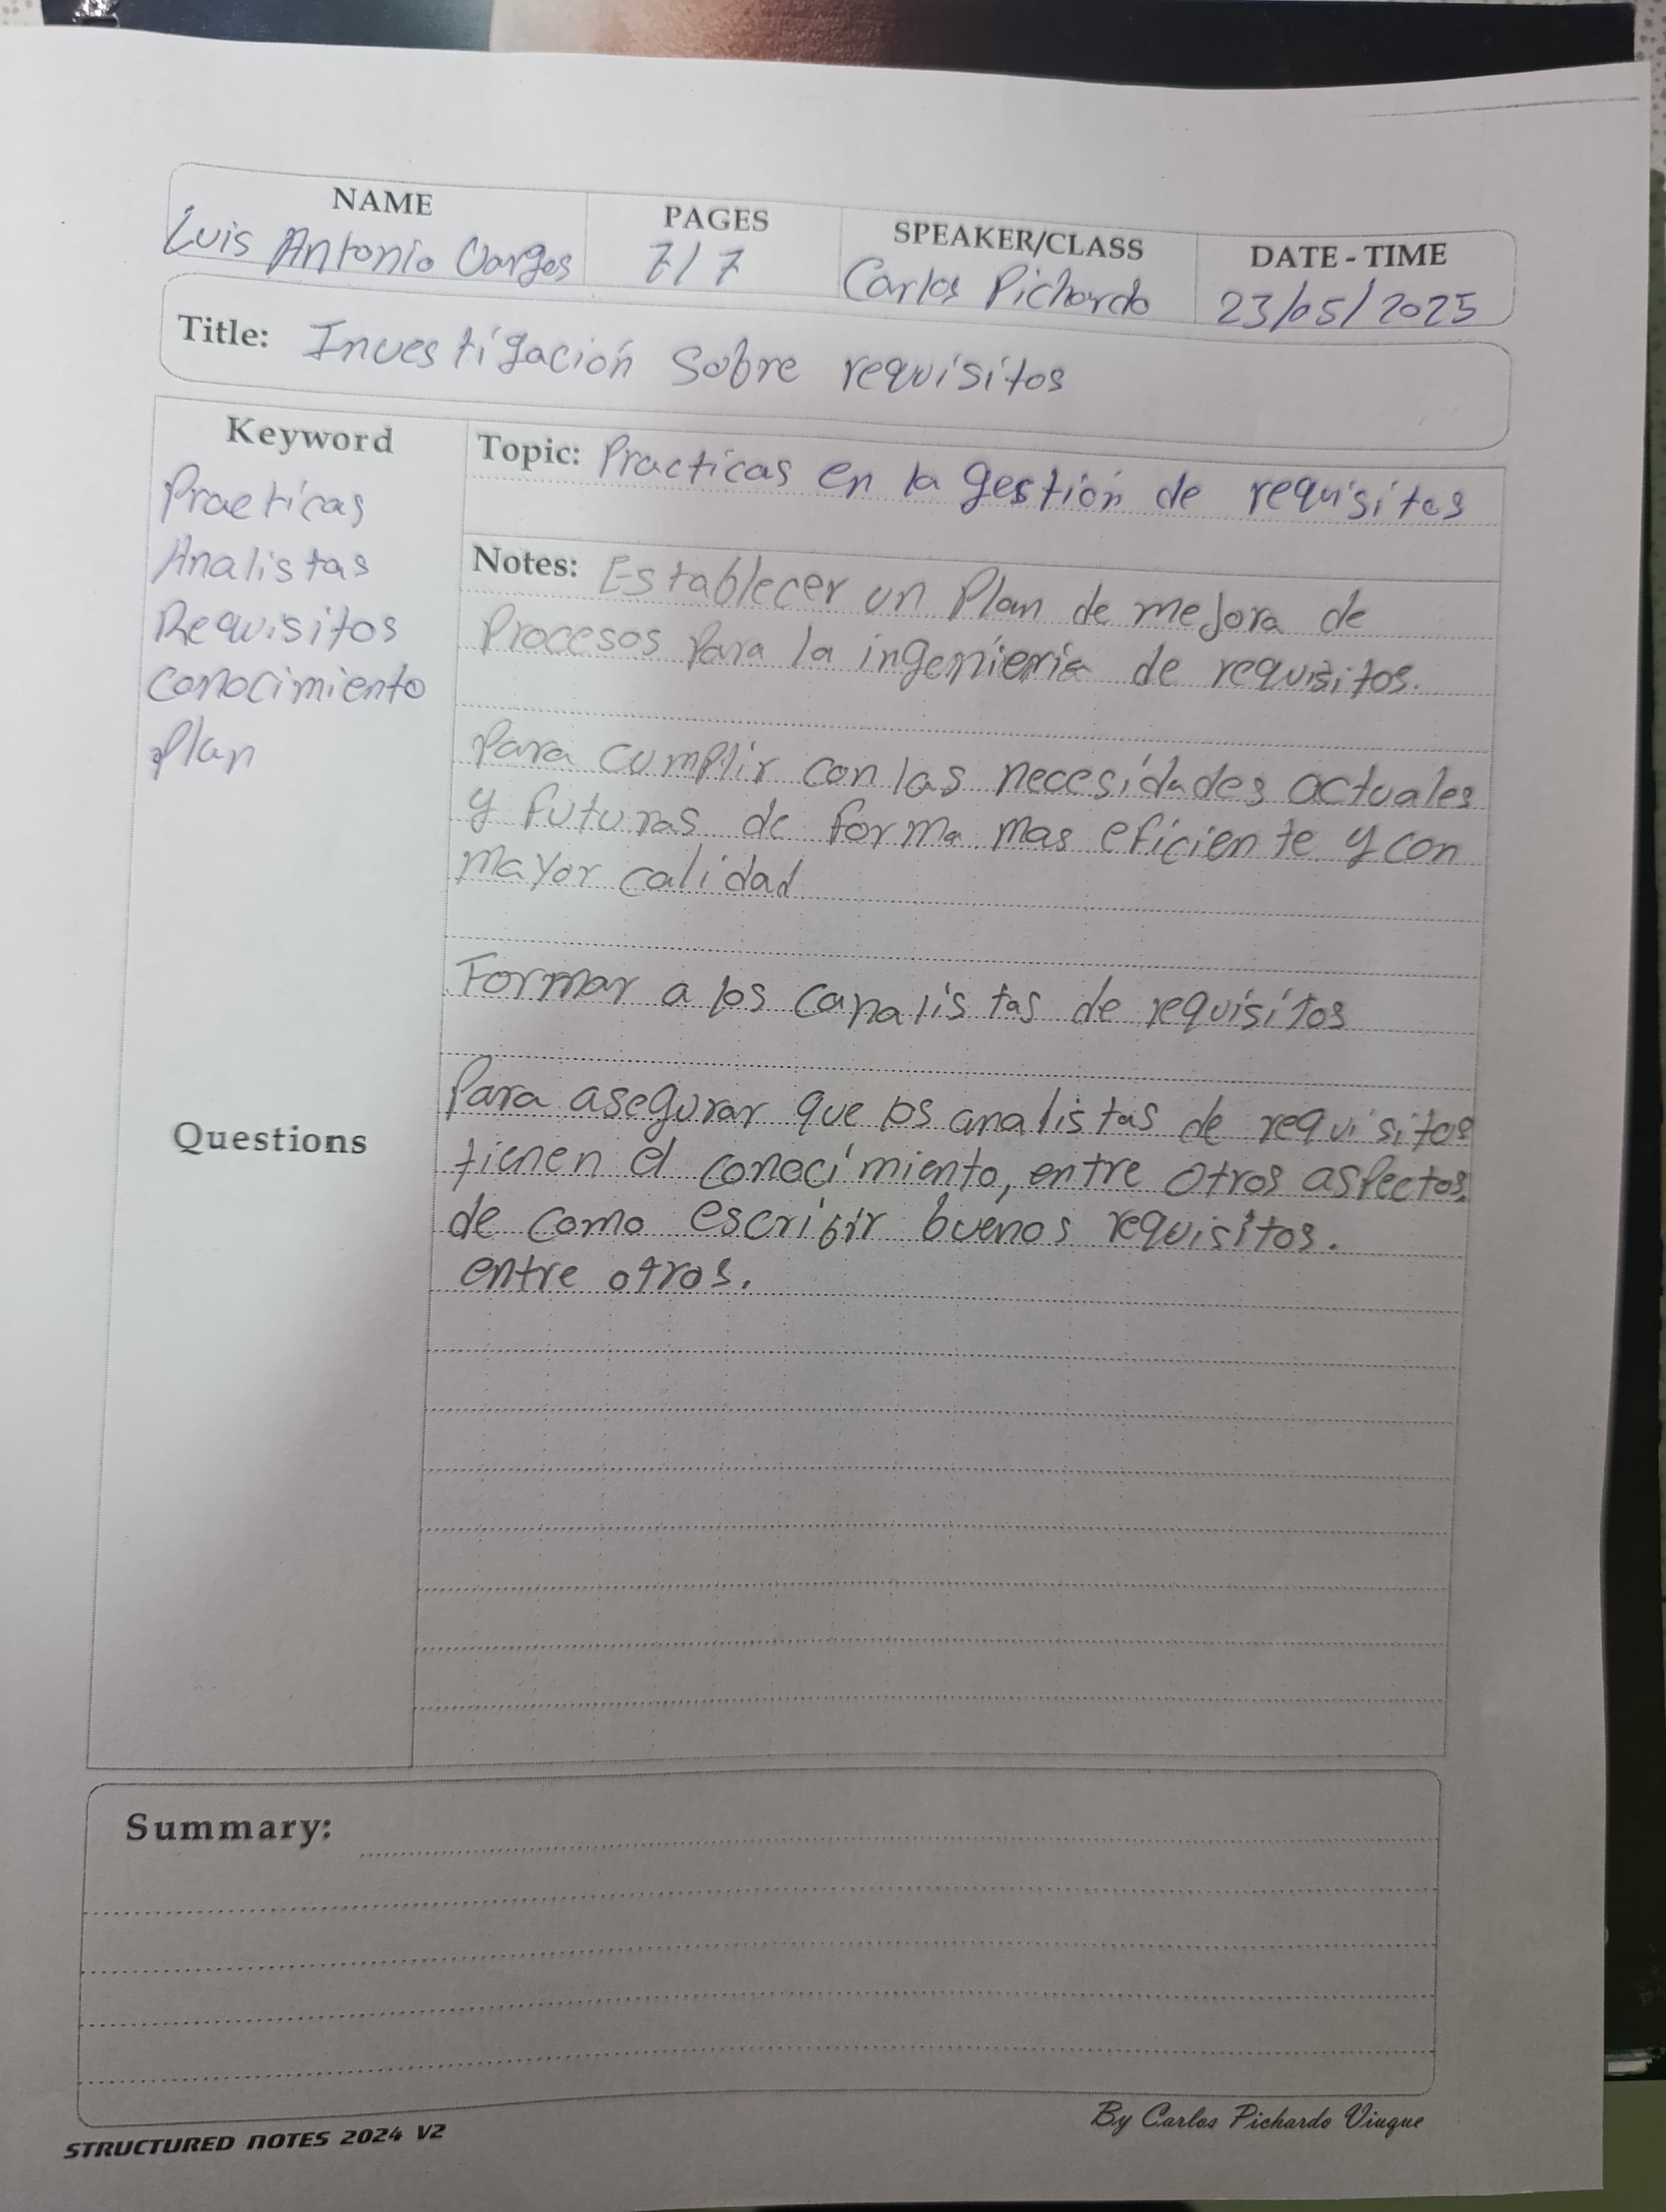 NAME
Luis Antonio Vargas
PAGES
7/7
SPEAKER/CLASS
Carlos Pichardo
DATE - TIME
23/05/2025
Title: Investigación Sobre requisitos
Keyword
Practicas
Analistas
Requisitos
Conocimiento
Plan
Questions
Topic: Practicas en la gestión de requisitos
Notes: Establecer un Plan de mejora de
Procesos Para la ingenieria de requisitos.
Para cumplir con las necesidades actuales
y futuras de forma mas eficiente y con
mayor calidad
Formar a los canalistas de requisitos
Para asegurar que los analistas de requisitos
tienen el conocimiento, entre otros aspectos,
de como escribir buenos requisitos.
entre otros.
Summary:
STRUCTURED NOTES 2024 V2
By Carlos Pichardo Viuque